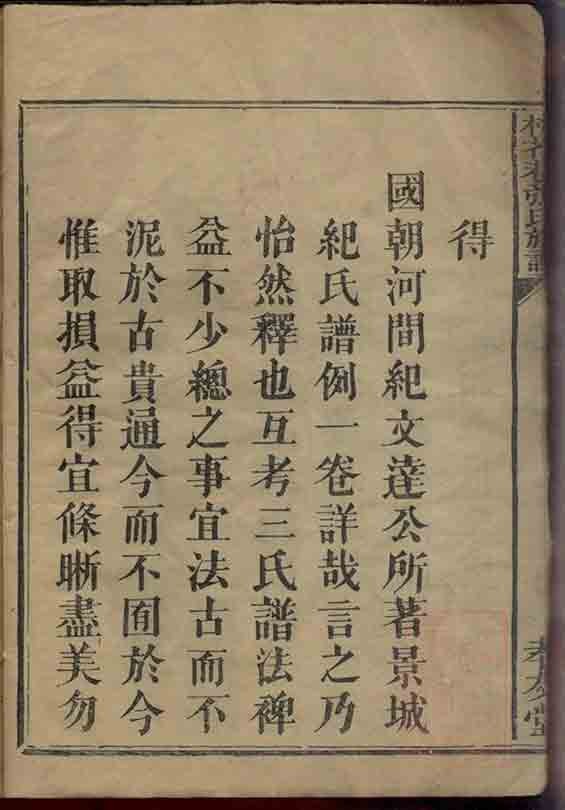 得
國朝河間紀文達公所著景城
紀氏譜例一卷詳哉言之乃
怡然釋也互考三氏譜法裨
益不少總之事宜法古而不
泥於古貴通今而不囿於今
惟取損益得宜條晰盡美勿
氏族譜
孝友堂